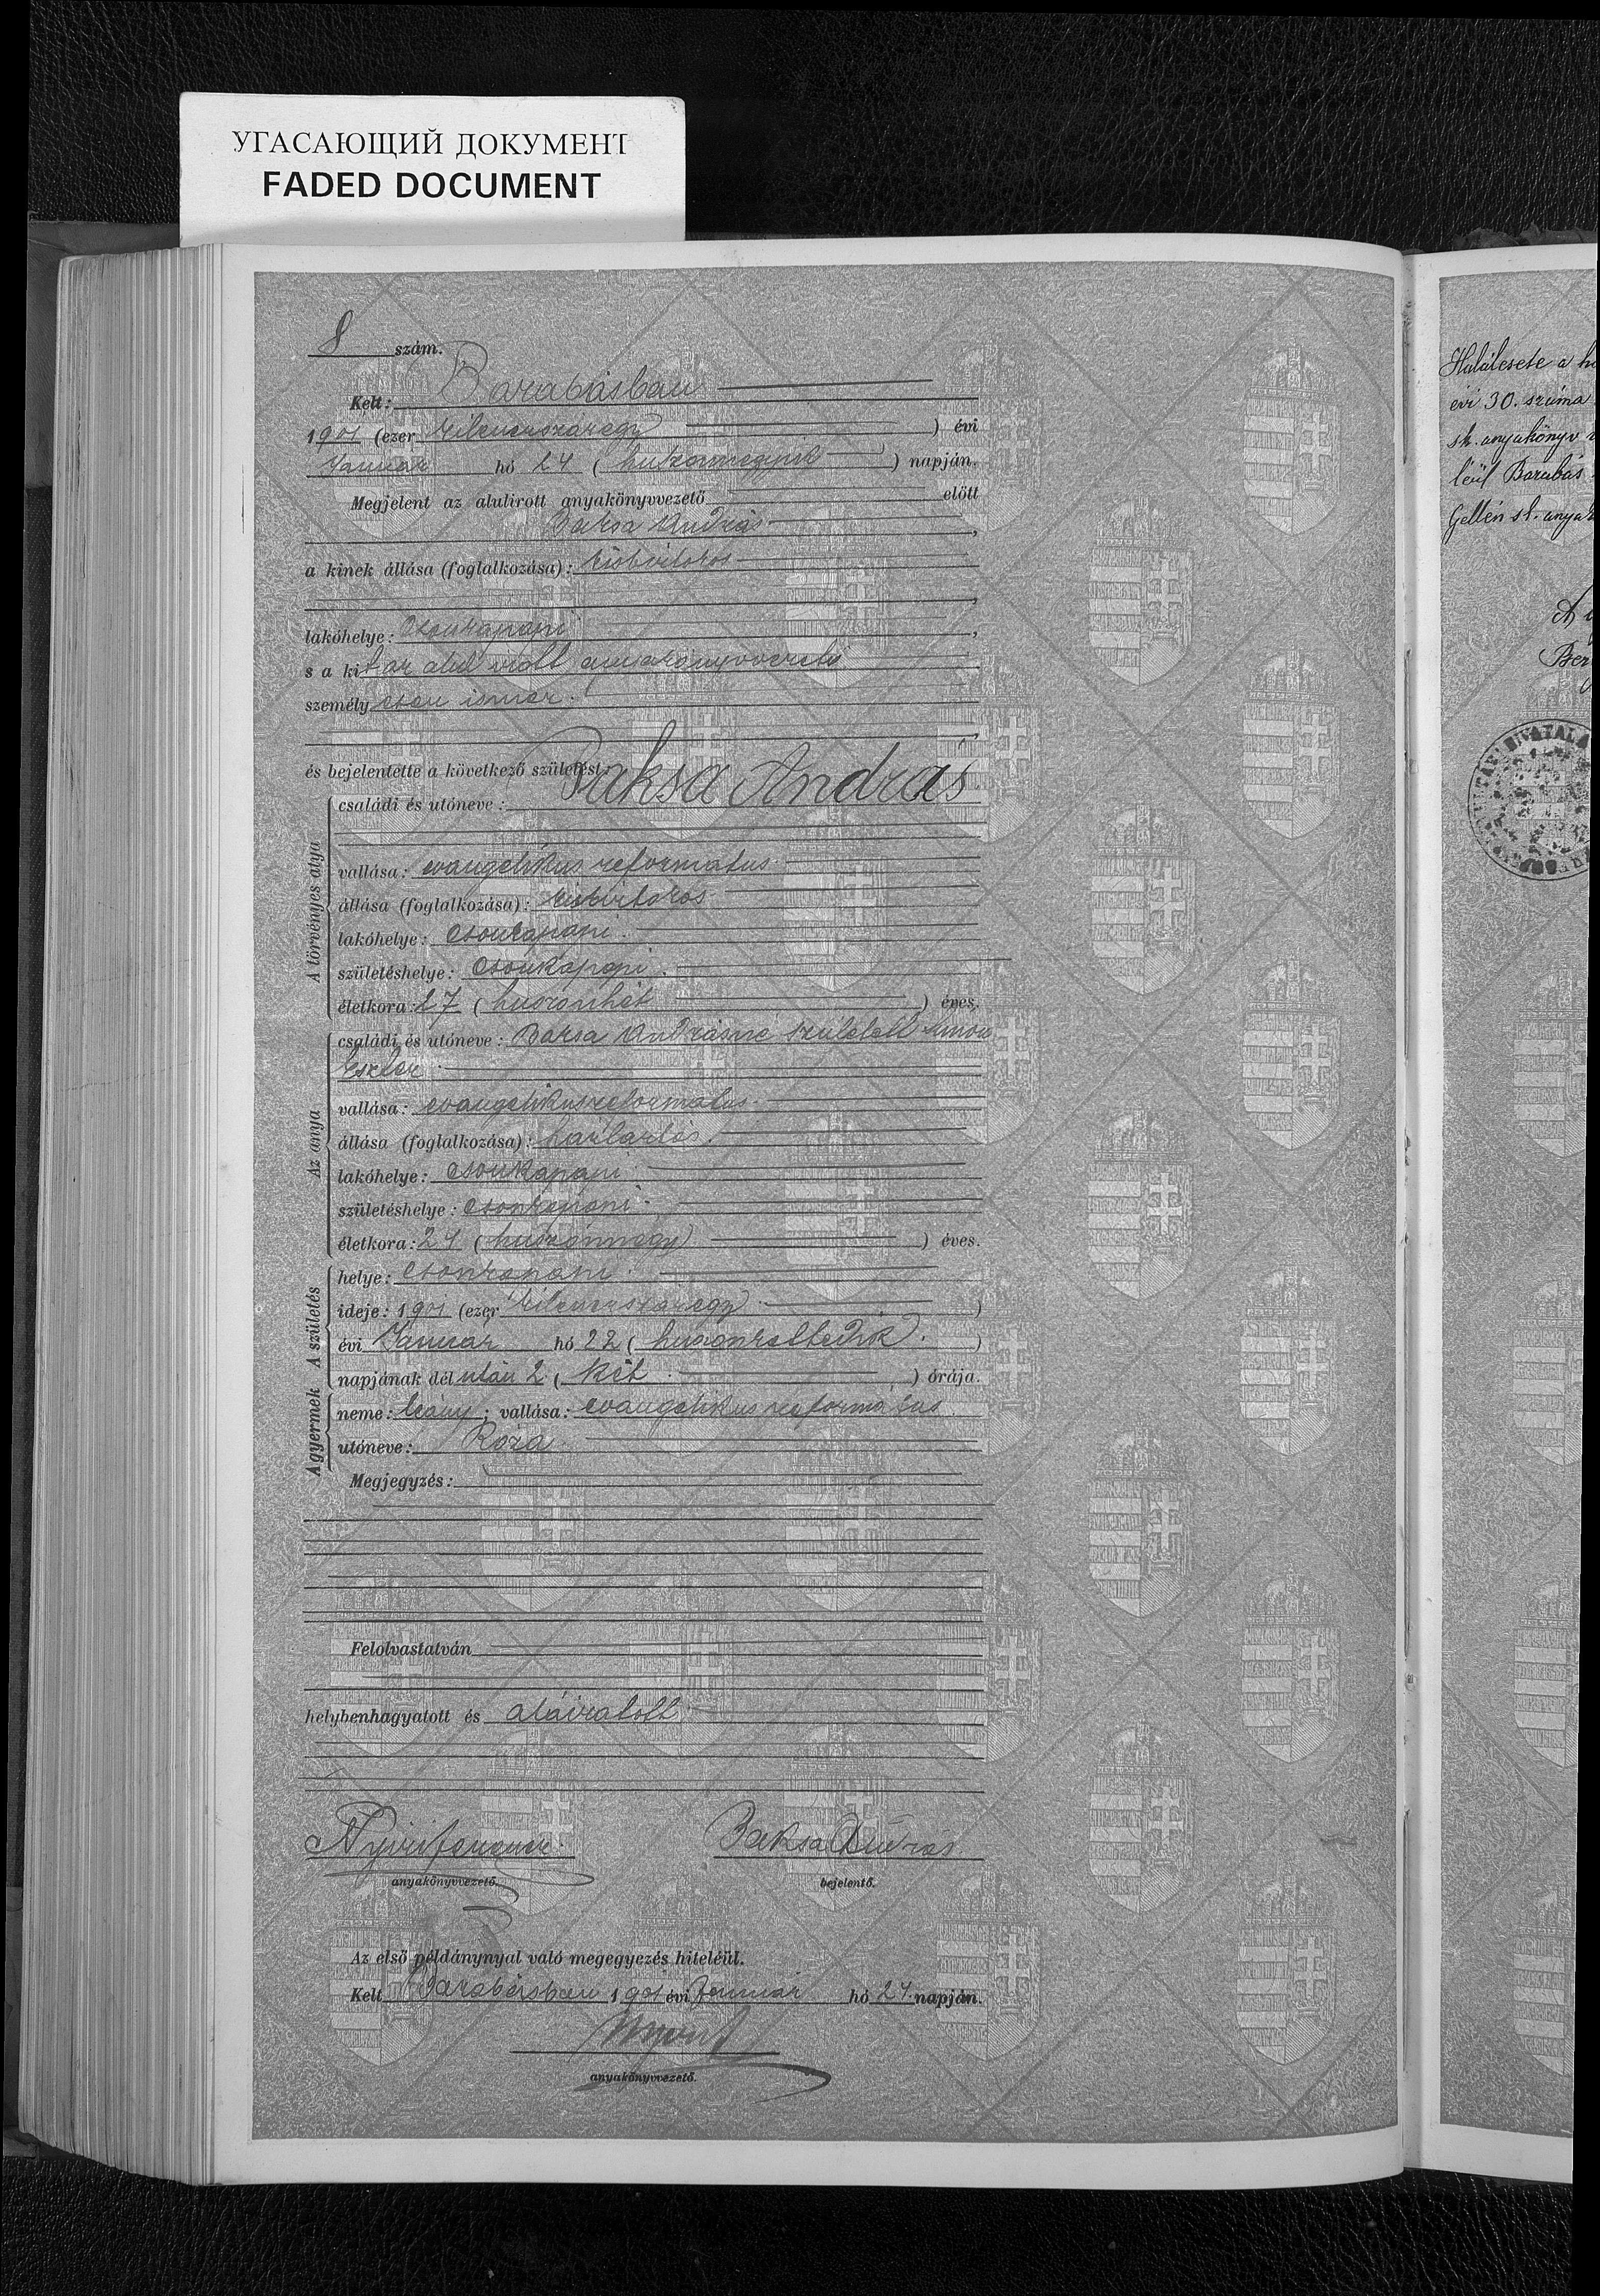 УГАСАЮЩИЙ ДОКУМЕНТ
FADED DOCUMENT
8 szám.
Kelt: Barabásban
1901 (ezer kilencszázegy) évi
Január hó 24 (huszonnegyik) napján.
Megjelent az alulirott anyakönyvvezető előtt
Baksa András,
a kinek állása (foglalkozása): kisbirtokos
lakóhelye: Csonkapapi,
s a kit az alul irott anyakönyvvezető
személyesen ismer.
és bejelentette a következő születést:
A törvényes atya
családi és utóneve: Baksa András
vallása: evangélikus reformatus
állása (foglalkozása): kisbirtokos
lakóhelye: Csonkapapi.
születéshelye: Csonkapapi.
életkora: 27 (huszonhét) éves.
Az anya
családi és utóneve: Baksa Andrásné született Simon
Eszter.
vallása: evangelikus reformatus.
állása (foglalkozása): háztartás.
lakóhelye: Csonkapapi
születéshelye: Csonkapapi.
életkora: 24 (huszonnégy) éves.
A születés
helye: Csonkapapi.
ideje: 1901 (ezer kilencszázegy)
évi Január hó 22 (huszonkettedik).
napjának dél után 2 (két) órája.
A gyermek
neme: leány; vallása: evangelikus református
utóneve: Róza
Megjegyzés:
Felolvastatván
helybenhagyatott és aláiratott
Nyiri Ferencz Baksa András
anyakönyvvezető. bejelentő.
Az első példánynyal való megegyezés hiteléül.
Kelt Barabásban 1901 évi Január hó 24. napján.
anyakönyvvezető.
Halálesete a
évi 30. száma
sk. anyakönyv
leül Barabás
Gellén sk.